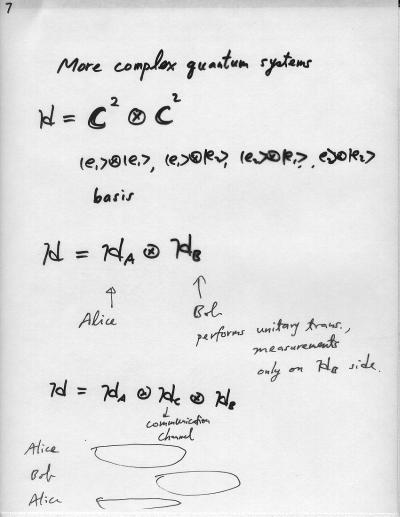 7
More complex quantum systems
H = C² ⊗ C²
|e₁>⊗|e₁>, |e₁>⊗|e₂>, |e₂>⊗|e₁>, e₂>⊗|e₂>
basis
H = H_A ⊗ H_B
Alice
Bob
performs unitary trans.,
measurements
only on H_B side.
H = H_A ⊗ H_C ⊗ H_B
communication
channel
Alice
Bob
Alice